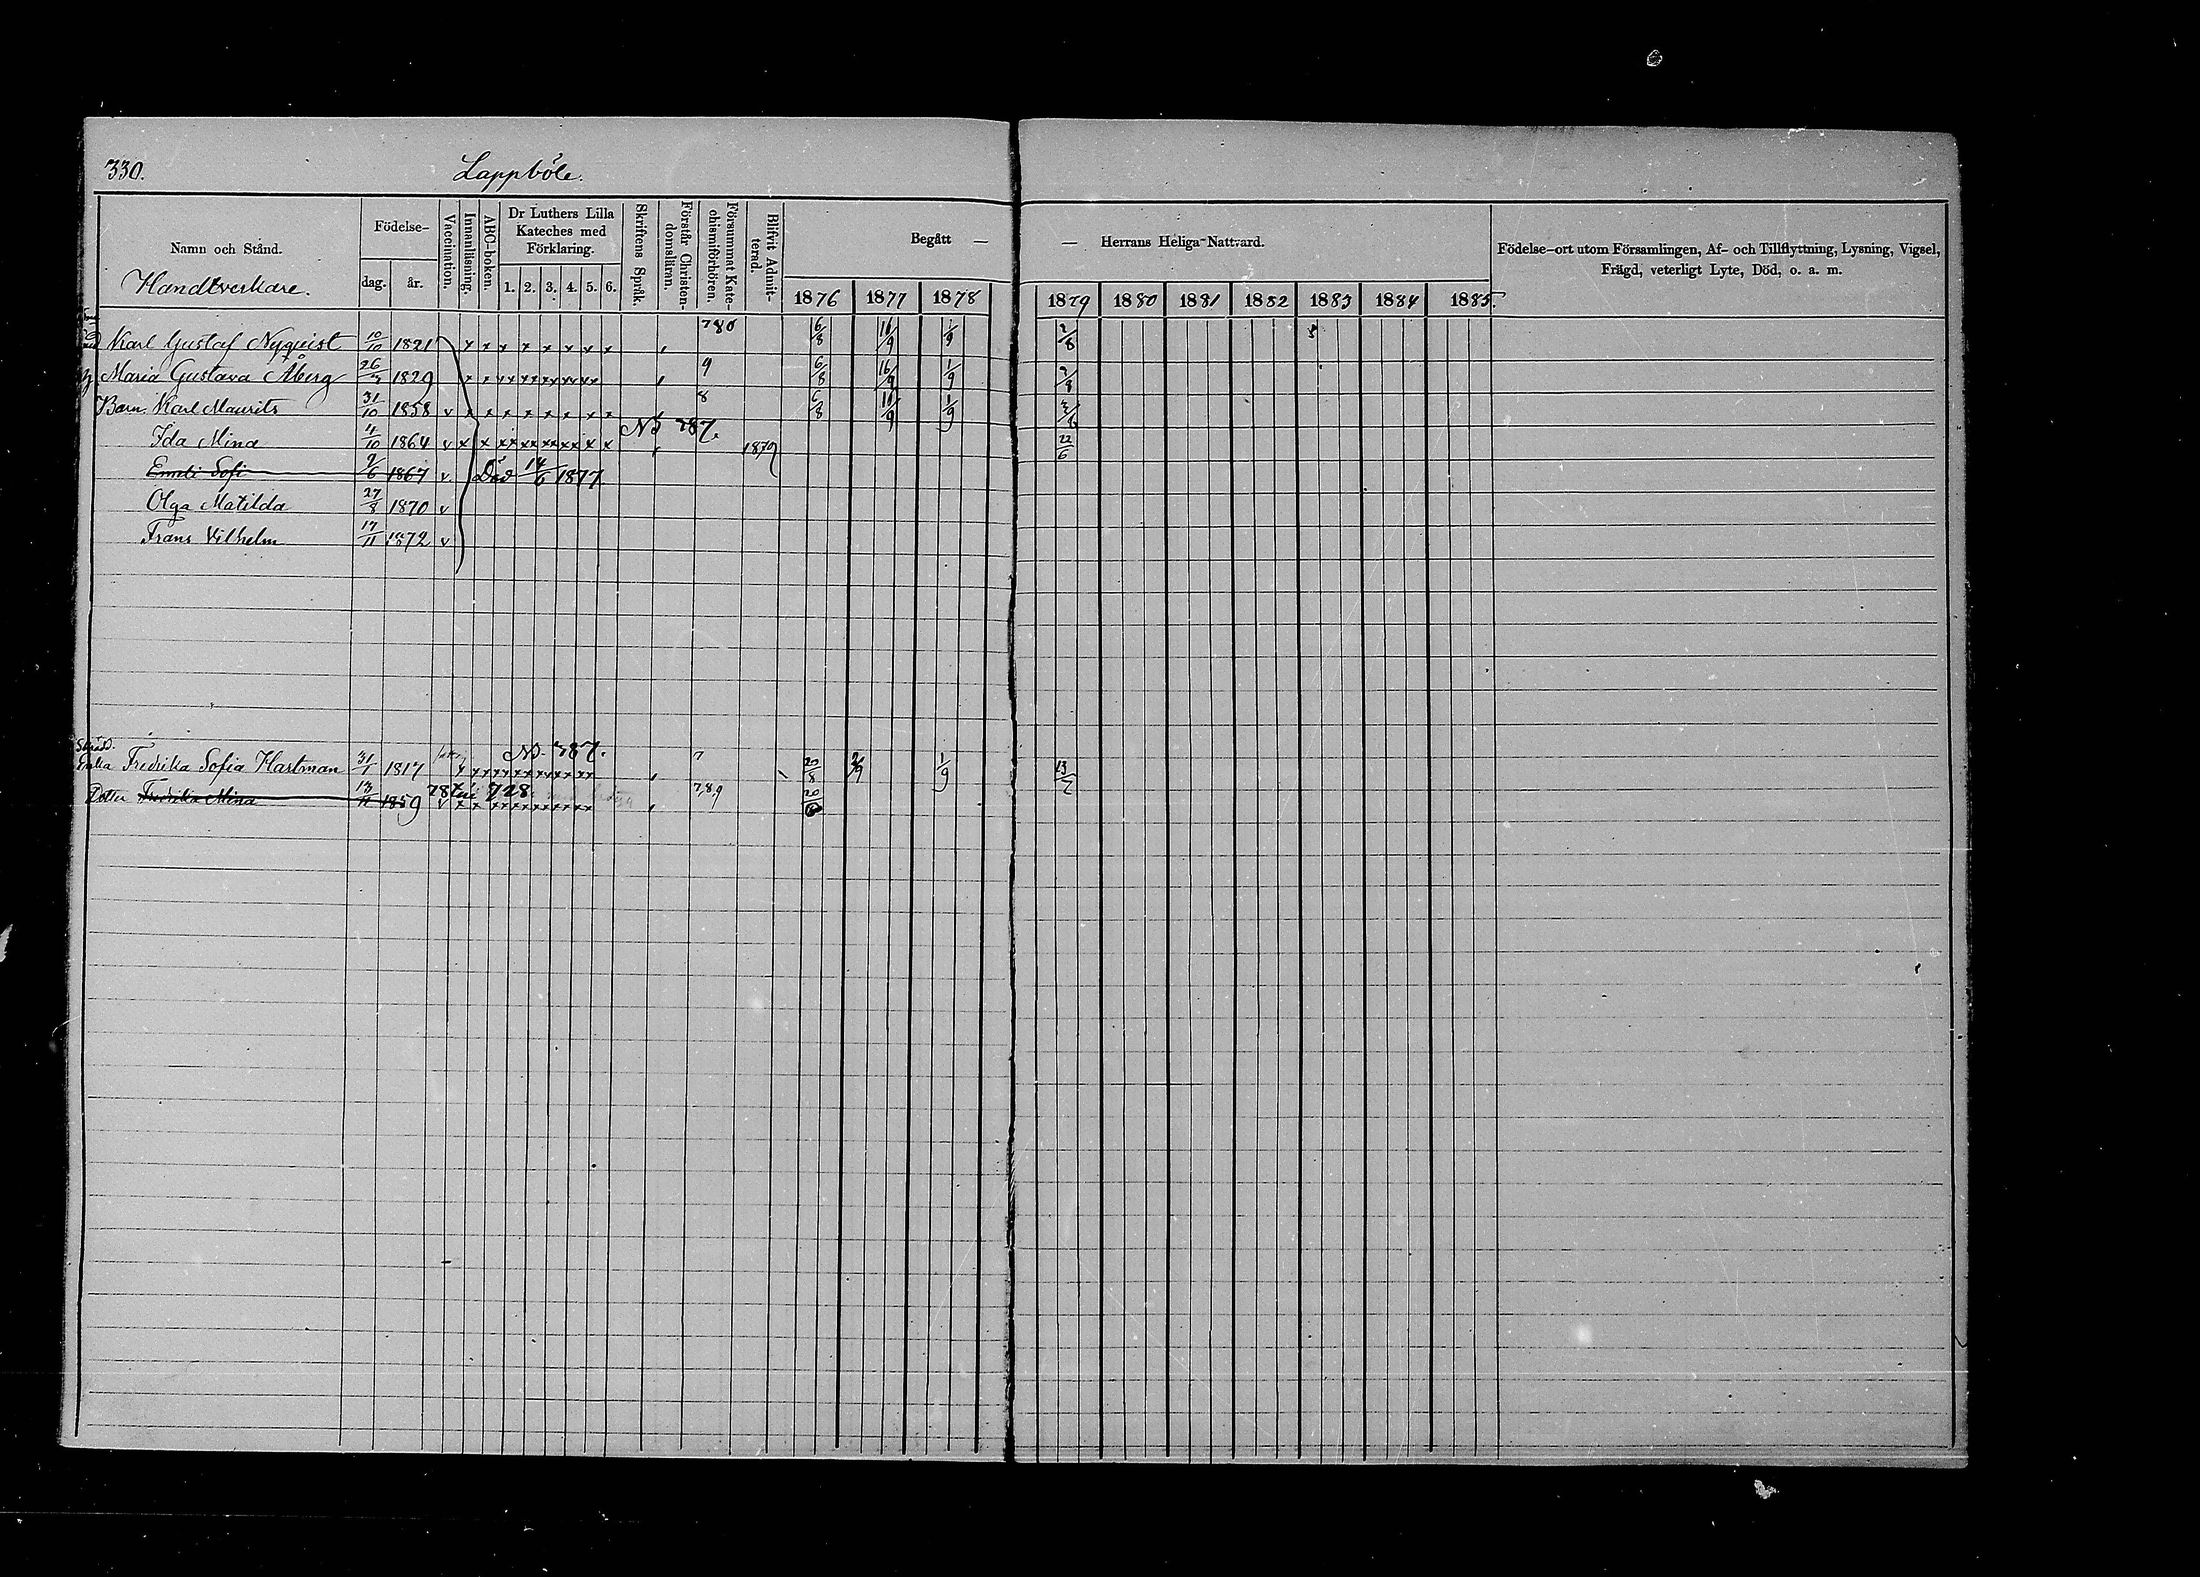 330. Lappböle.
Namn och Stånd. Födelse- dag. år. Vaccination. Innanläsning. ABC-boken. Dr Luthers Lilla Kateches med Förklaring. 1. 2. 3. 4. 5. 6. Skriftens Språk. Förstår Christendomsläran. Försummat Katechismiförhören. Blifvit Admitterad. Begått — — Herrans Heliga Nattvard. Födelse-ort utom Församlingen, Af- och Tillflyttning, Lysning, Vigsel,
Frägd, veterligt Lyte, Död, o. a. m.
Handtverkare.
1876 1877 1878 1879 1880 1881 1882 1883 1884 1885.
Karl Gustaf Nyqvist 10/10 1821 x x x x x x x x 780 6/8 16/9 1/9 2/8
Maria Gustava Åberg 26/3 1829 9 6/8 16/9 1/9 2/8
Barn. Karl Maurits 31/10 1858 v x x x x x x x x 8 6/8 1/9
NB 387.
Ida Mina 4/10 1864 v x x 1879 22/6
Emili Sofi 9/6 1867 v Död 14/6 1877
Olga Matilda 27/8 1870 v
Frans Vilhelm 17/11 1872 v
Skrädd. NB. 387.
Enka Fredrika Sofia Hartman 31/1 1817 7 20/8 2/9 1/9 13/7
Dotter Fredrika Mina 1859 v 787 till 728 7,8,9 20